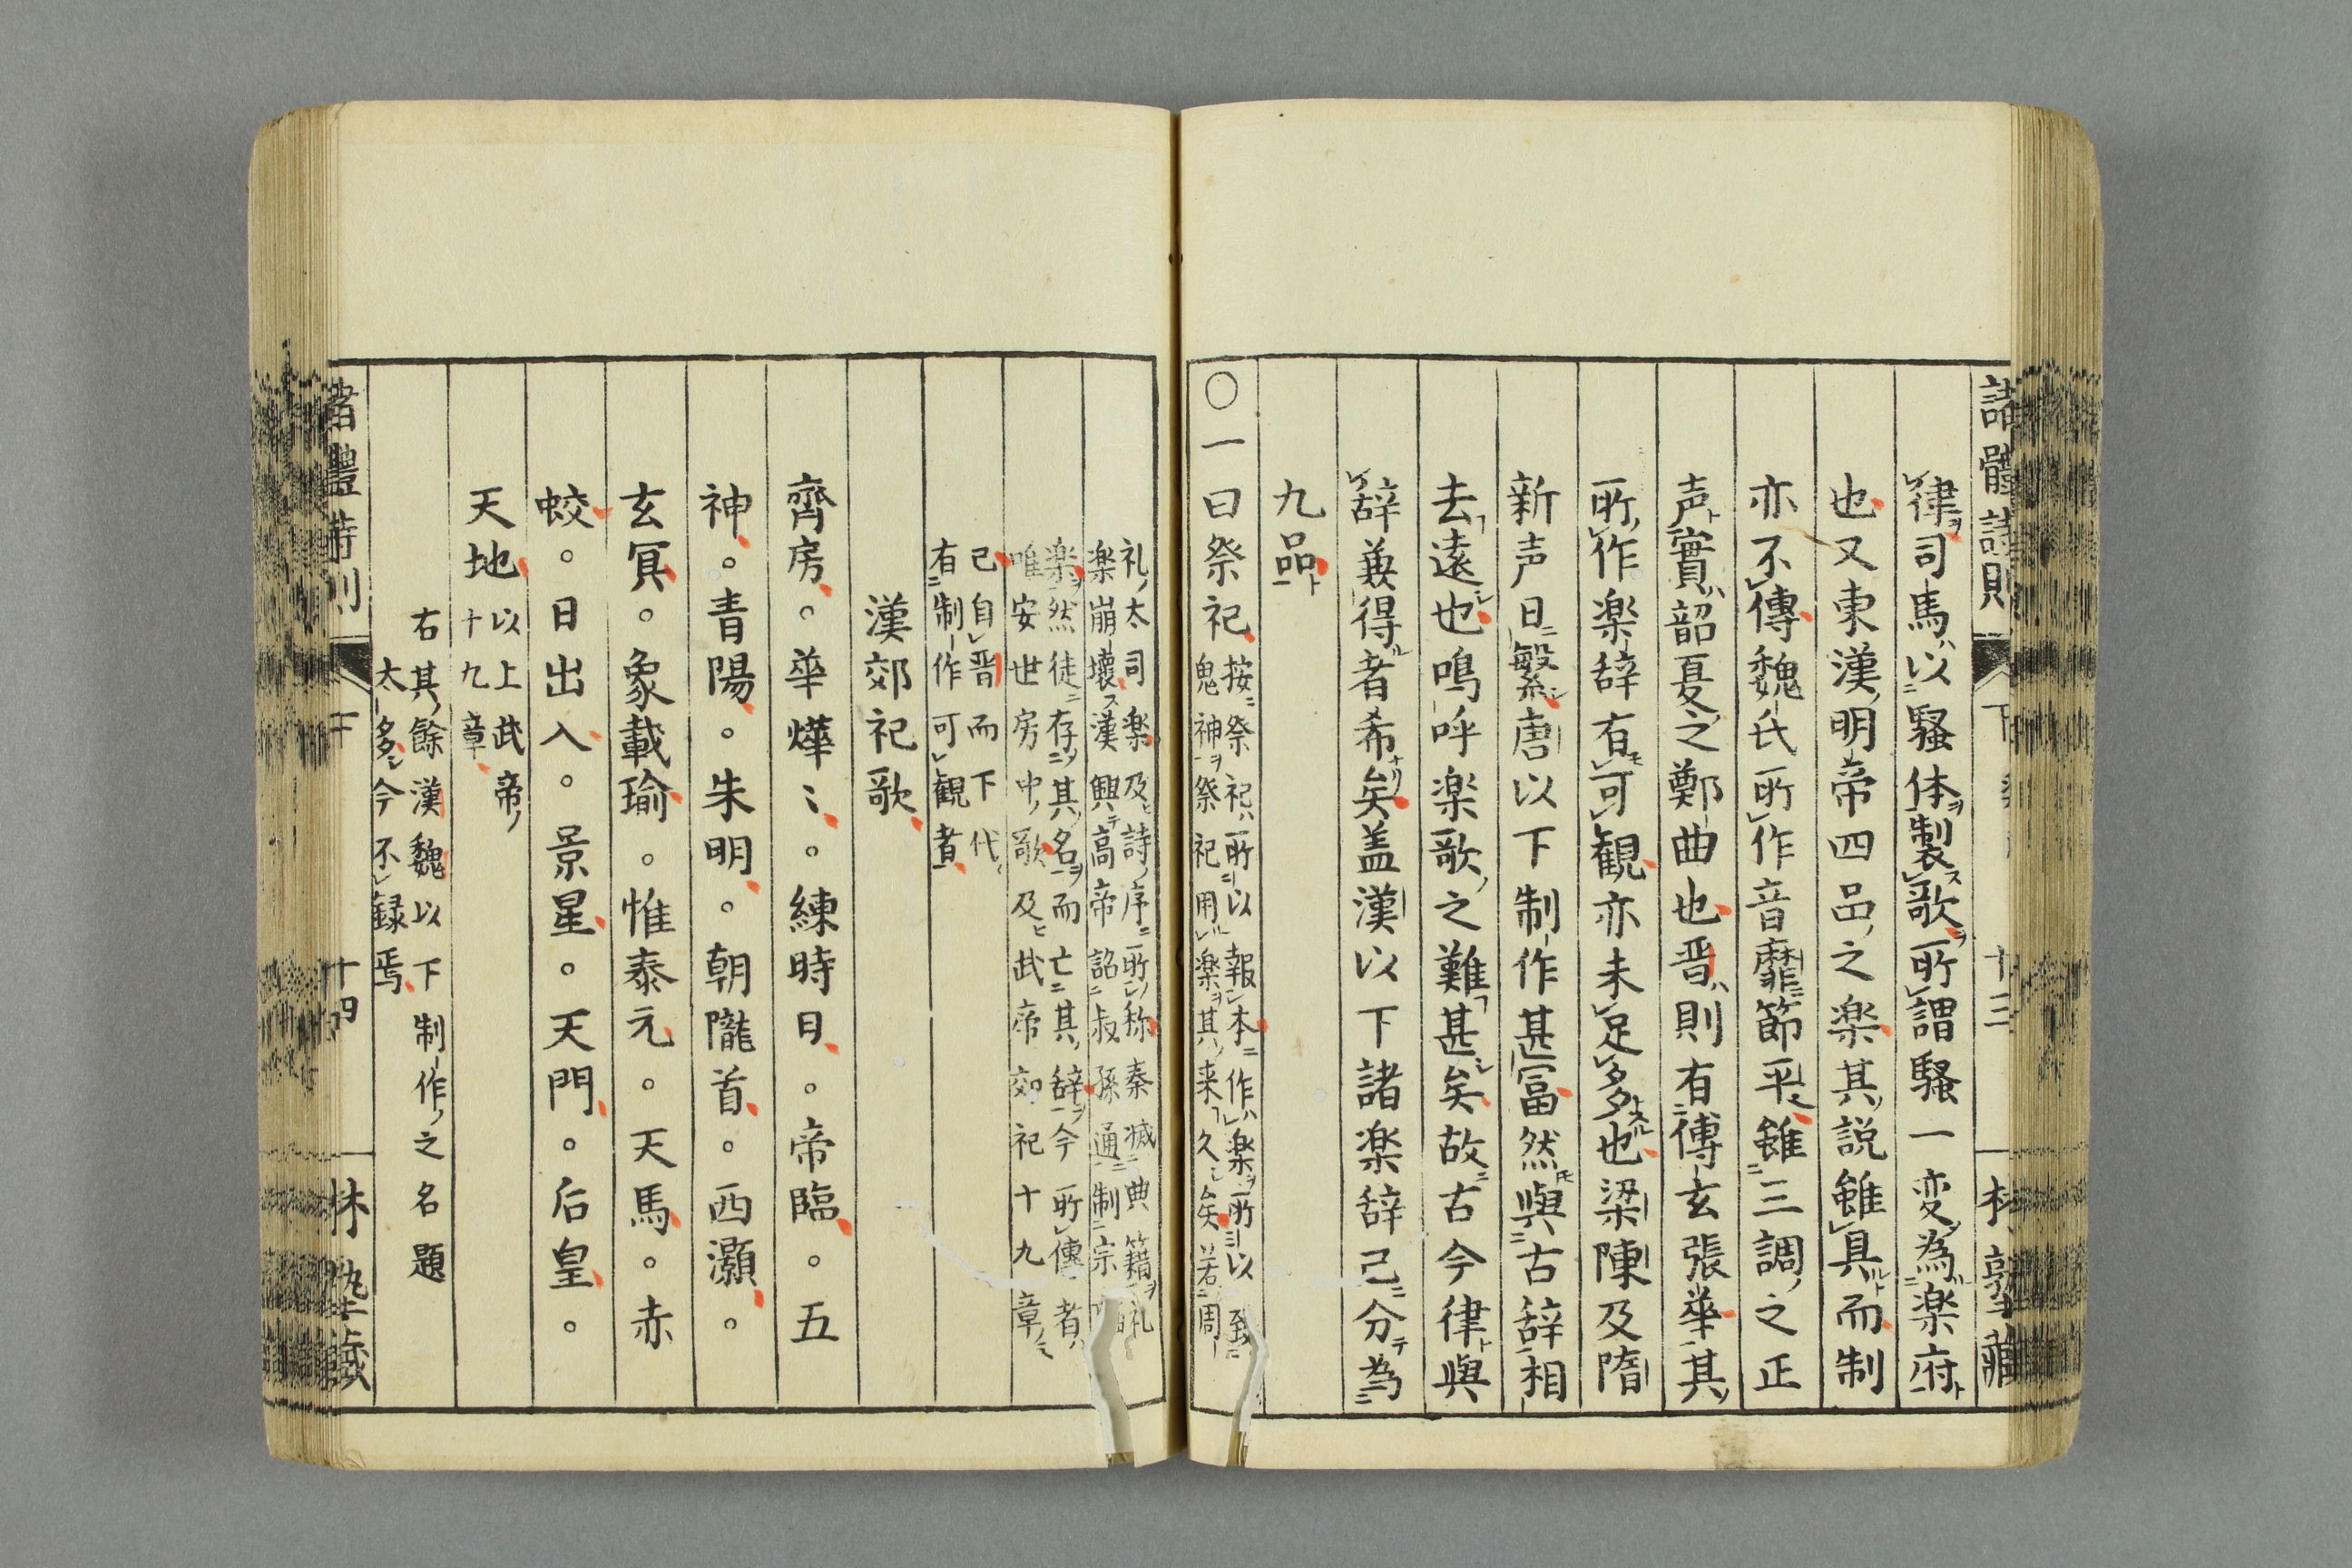 諸體詩則 下 十三
律司馬以騷体製歌所謂騷一変為楽府
也又東漢明帝四品之楽其説雖具而制
亦不傳魏氏所作音靡節平雖三調之正
声實韶夏之鄭曲也晋則有傅玄張華其
所作楽辞有可観亦未足多也梁陳及隋
新声日繁唐以下制作甚冨然與古辞相
去遠也鳴呼楽歌之難甚矣故古今律與
辞兼得者希矣盖漢以下諸楽辞已分為
九品
〇一曰祭祀
按祭祀所以報本作楽所以致
鬼神祭祀用楽其来久矣若周
礼太司楽及詩序所称秦滅典籍礼
楽崩壊漢興高帝詔叔孫通制宗
楽然徒存其名而亡其辞今所傳者
唯安世房中歌及武帝郊祀十九章
已自晋而下代
有制作可観者
漢郊祀歌
齊房。華燁〻。練時日。帝臨。五
神。青陽。朱明。朝隴首。西灝。
玄冥。象載瑜。惟泰元。天馬。赤
蛟。日出入。景星。天門。后皇。
天地
以上武帝
十九章
右其餘漢魏以下制作之名題
太多今不録焉
十四